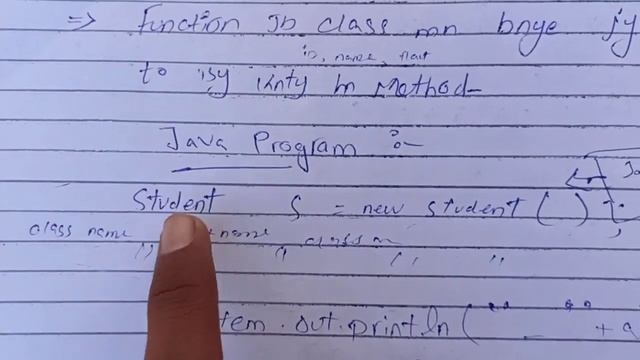 => Function Jb class mn bnye jy
in, name, 
to isy knty hn Method-
Java Program :-
Student S = new student ( )
class name name class
tem.out.println (" _ " + a